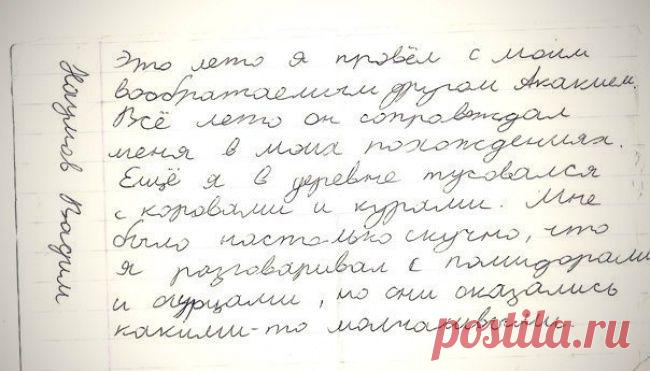 Наумов Вадим
Это лето я провёл с моим
вообратаемым другом Акакием.
Всё лето он сопровждал
меня в моих похождениях.
Ещё я в деревне тусовался
с коровами и курами. Мне
было настолько скучно, что
я разговаривал с помидорами
и огурцами, но они оказались
какими-то молчаливыми
postila.ru